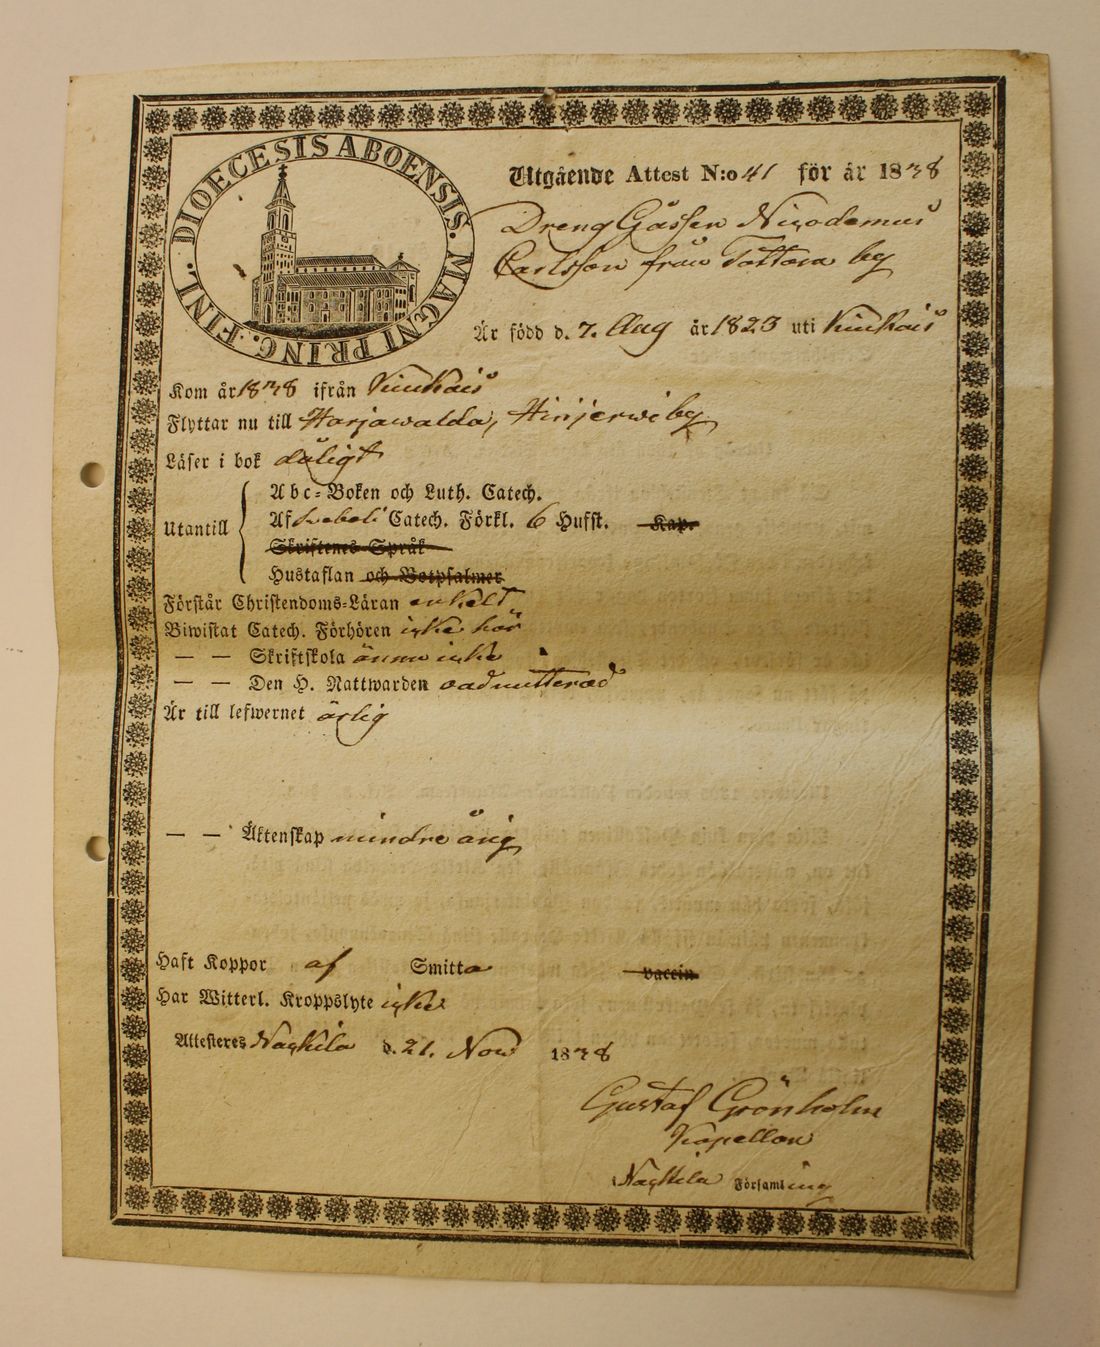 DIOECESIS ABOENSIS. MAGNI PRINC. FINL.
Utgående Attest N:o 41 för år 1838
Dreng Gåssen Nicodemus
Carlsson från Tottara by
Är född d. 7. Aug år 1823 uti Kiukais
Kom år 1838 ifrån Kiukais
Flyttar nu till Harjawalda, Hinjerwi by
Läser i bok dåligt
Utantill
Abc-Boken och Luth. Catech.
Af Svebeli Catech. Förkl. 6 Hufst. Kap.
Skriftenes Språk
Hustaflan och Botpsalmer
Förstår Christendoms-Läran enkelt
Biwistat Catech. Förhören icke här
— — Skriftskola ännu icke
— — Den H. Nattwarden oadmitterad
Är till lefwernet ärlig
— — Äktenskap mindre årig
Haft Koppor af Smitta vaccin
Har Witterl. Kroppslyte icke
Attesteres Nackila d. 21. Nov 1838
Gustaf Grönholm
Kapellan
Nackila Församling